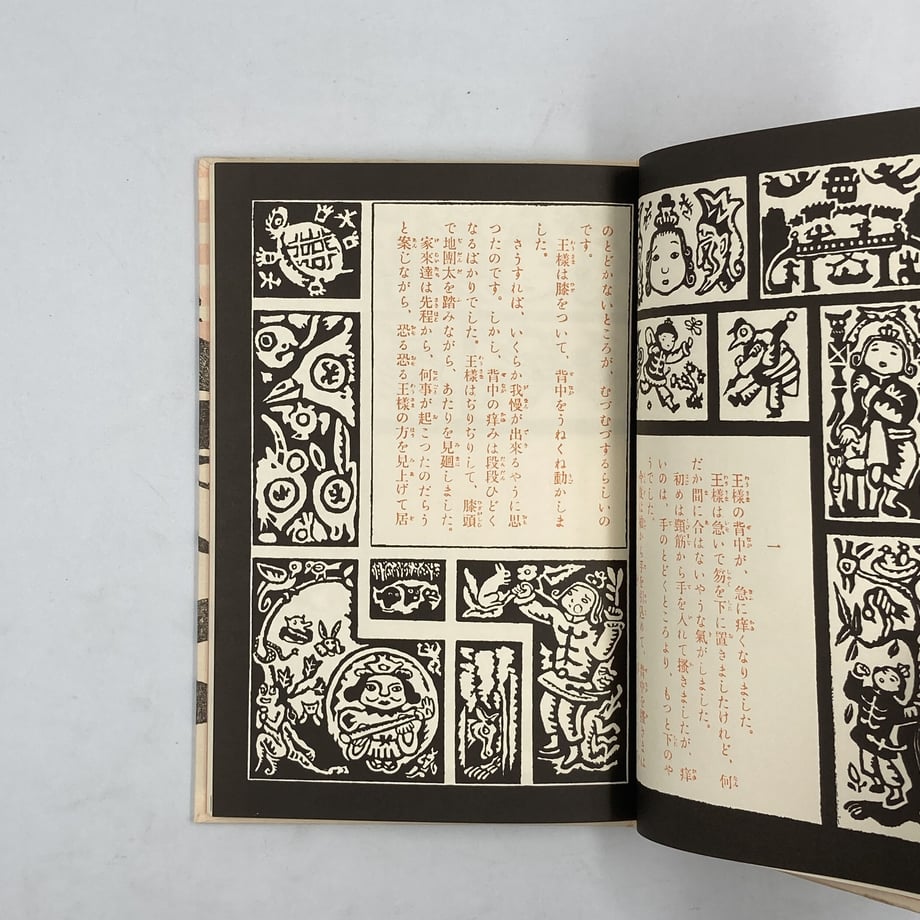 一
王様の背中が、急に痒くなりました。
王様は急いで笏を下に置きましたけれど、何
だか間に合はないやうな気がしました。
初めは頸筋から手を入れて掻きましたが、痒
いのは、手のとどくところより、もつと下のや
うでした。
のとどかないところが、むづむづするらしいの
です。
王様は膝をついて、背中をうねくね動かしま
した。
さうすれば、いくらか我慢が出来るやうに思
つたのです。しかし、背中の痒みは段段ひどく
なるばかりでした。王様はぢりぢりして、膝頭
で地團太を踏みながら、あたりを見廻しました。
家來達は先程から、何事が起こつたのだらう
と案じながら、恐る恐る王様の方を見上げて居